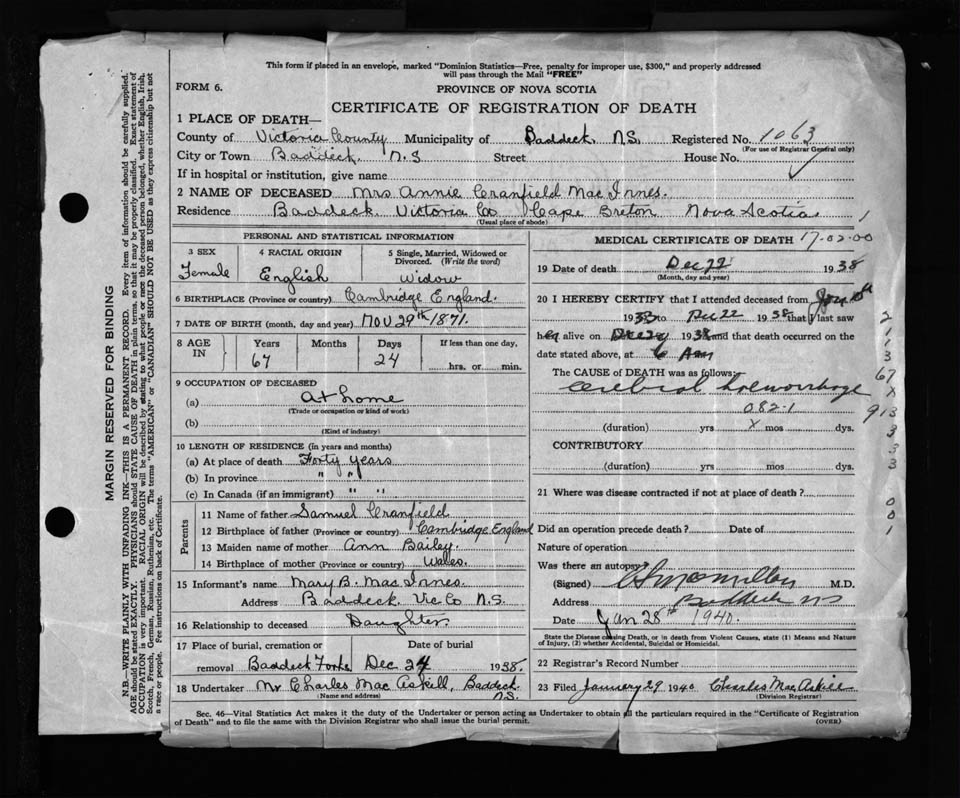 This form if placed in an envelope, marked "Dominion Statistics—Free, penalty for improper use, $300," and properly addressed
will pass through the Mail "FREE"
FORM 6.
PROVINCE OF NOVA SCOTIA
CERTIFICATE OF REGISTRATION OF DEATH
1 PLACE OF DEATH—
County of Victoria County Municipality of Baddeck, N.S. Registered No. 1063
(For use of Registrar General only)
City or Town Baddeck, N.S Street House No.
If in hospital or institution, give name
2 NAME OF DECEASED Mrs Annie Cranfield Mac Innes.
Residence Baddeck Victoria Co Cape Breton Nova Scotia
(Usual place of abode)
PERSONAL AND STATISTICAL INFORMATION
3 SEX 4 RACIAL ORIGIN 5 Single, Married, Widowed or
Divorced. (Write the word)
Female English Widow
6 BIRTHPLACE (Province or country) Cambridge England.
7 DATE OF BIRTH (month, day and year) Nov 29th 1871.
8 AGE IN Years Months Days If less than one day,
67 24 hrs. or min.
9 OCCUPATION OF DECEASED
(a) At home
(Trade or occupation or kind of work)
(b)
(Kind of industry)
10 LENGTH OF RESIDENCE (in years and months)
(a) At place of death Forty years
(b) In province " "
(c) In Canada (if an immigrant) " "
Parents
11 Name of father Samuel Cranfield
12 Birthplace of father (Province or country) Cambridge England
13 Maiden name of mother Ann Bailey.
14 Birthplace of mother (Province or country) Wales.
15 Informant's name Mary B. Mac Innes.
Address Baddeck. Vic Co N.S.
16 Relationship to deceased Daughter
17 Place of burial, cremation or Date of burial
removal Baddeck Forks Dec 24 1938.
18 Undertaker Mr Charles Mac Askill, Baddeck
(Name and address) N.S.
MEDICAL CERTIFICATE OF DEATH 17-02-00
19 Date of death Dec 22 1938
(Month, day and year)
20 I HEREBY CERTIFY that I attended deceased from
1938 to Dec 22 1938 that I last saw
her alive on 1938 and that death occurred on the
date stated above, at 6 Am
The CAUSE of DEATH was as follows:—
Cerebral haemorrhage
082-1
(duration) yrs X mos dys.
CONTRIBUTORY
(duration) yrs mos dys.
21 Where was disease contracted if not at place of death?
Did an operation precede death? Date of
Nature of operation
Was there an autopsy?
(Signed) McMillan M.D.
Address Baddeck NS
Date Jan 28th 1940.
State the Disease causing Death, or in death from Violent Causes, state (1) Means and Nature
of Injury, (2) whether Accidental, Suicidal or Homicidal.
22 Registrar's Record Number
23 Filed January 29 1940 Charles MacAskill
(Division Registrar)
1
2
1
1
3
67
X
913
3
3
3
0
0
1
Sec. 46—Vital Statistics Act makes it the duty of the Undertaker or person acting as Undertaker to obtain all the particulars required in the "Certificate of Registration
of Death" and to file the same with the Division Registrar who shall issue the burial permit.
(OVER)
MARGIN RESERVED FOR BINDING
N.B.—WRITE PLAINLY WITH UNFADING INK—THIS IS A PERMANENT RECORD. Every item of information should be carefully supplied.
AGE should be stated EXACTLY. PHYSICIANS should STATE CAUSE OF DEATH in plain terms, so that it may be properly classified. Exact statement of
OCCUPATION is very important. RACIAL ORIGIN will be described by stating to what people or race the deceased person belonged, whether English, Irish,
Scotch, French, German, Russian, Ruthenian, etc. The terms "AMERICAN" or "CANADIAN" SHOULD NOT BE USED as they express citizenship but not
a race or people. See instructions on back of Certificate.